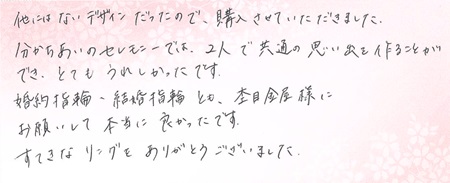 他にはないデザインだったので、購入させていただきました。
分かちあいのセレモニーでは、2人で共通の思い出を作ることが
でき、とてもうれしかったです。
婚約指輪・結婚指輪とも、杢目金屋様に
お願いして本当に良かったです。
すてきなリングをありがとうございました。